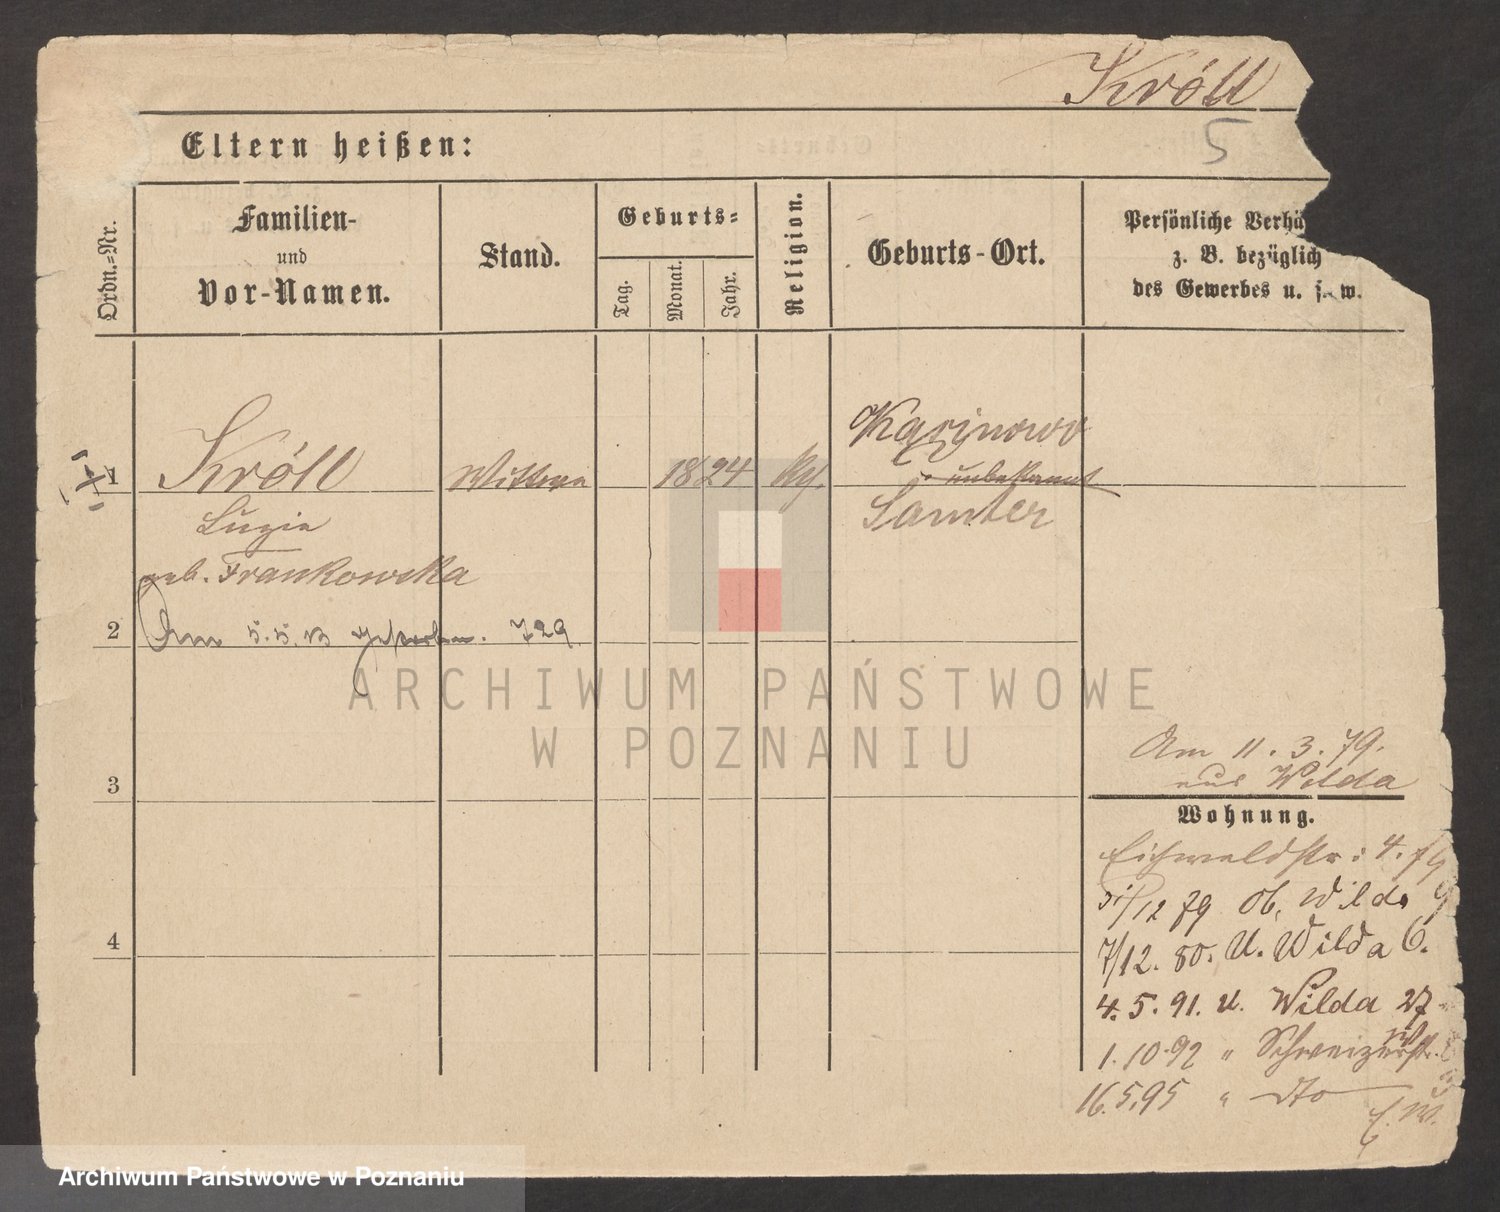 Król̄l
5
Eltern heißen:
Ordn.-Nr.
Familien-
und
Vor-Namen.
Stand.
Geburts-
Tag.
Monat.
Jahr.
Religion.
Geburts-Ort.
Persönliche Verhä
z. B. bezüglich
des Gewerbes u. s. w.
1
Króll
Wittwe
1824
Luzie
geb. Frankowska
unbekannt
Samter
2
Am 5. 5. 13 gestorben. 729.
3
4
Am 11. 3. 79.
aus Wilda
Wohnung.
Eichwaldstr: 4. 79
31/12 79 Ob. Wilda 9
7/12. 80. U. Wilda 6.
4. 5. 91. U. Wilda 27
1. 10. 92 " Schweizerstr.
16. 5. 95 " dto
ARCHIWUM PAŃSTWOWE
W POZNANIU
Archiwum Państwowe w Poznaniu